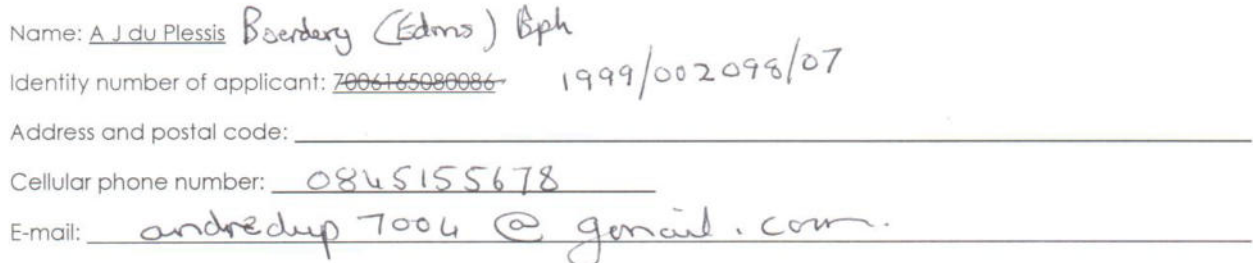 Name: A J du Plessis Boerdery (Edms) Bpk
Identity number of applicant: 7006165080086 1999/002098/07
Address and postal code:
Cellular phone number: 0845155678
E-mail: andredup7004@gmail.com.